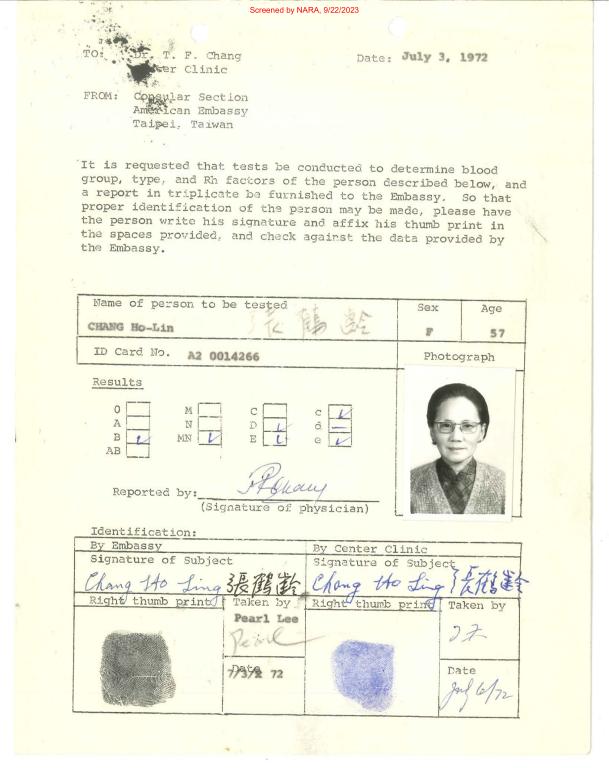 Screened by NARA, 9/22/2023
TO: Dr. T. F. Chang
Clinic
Date: July 3, 1972
FROM: Consular Section
American Embassy
Taipei, Taiwan
It is requested that tests be conducted to determine blood
group, type, and Rh factors of the person described below, and
a report in triplicate be furnished to the Embassy. So that
proper identification of the person may be made, please have
the person write his signature and affix his thumb print in
the spaces provided, and check against the data provided by
the Embassy.
Name of person to be tested
CHANG Ho-Lin 張鶴齡
Sex
F
Age
57
ID Card No. A2 0014266
Photograph
Results
O M C c ✓
A N D ✓ d —
B ✓ MN ✓ E ✓ e ✓
AB
Reported by:
(Signature of physician)
Identification:
By Embassy
By Center Clinic
Signature of Subject
Signature of Subject
Chang Ho Ling 張鶴齡
Chang Ho Ling 張鶴齡
Right thumb print
Taken by
Pearl Lee
Pearl
Date
7/3/2 72
Right thumb print
Taken by
Date
July 6/72